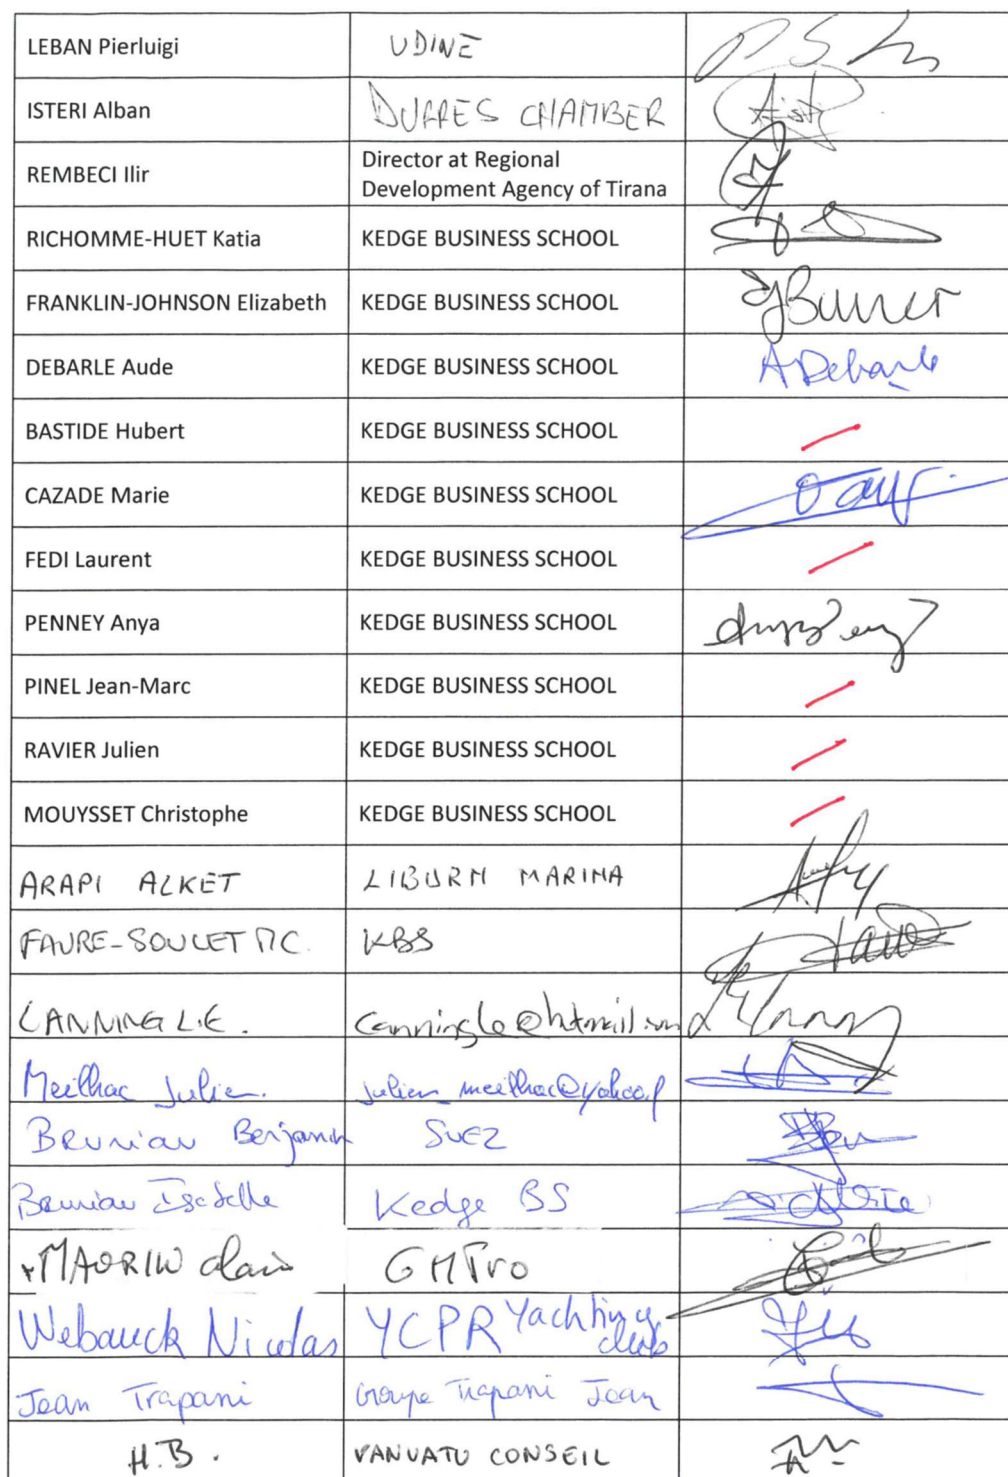 LEBAN Pierluigi UDINE
ISTERI Alban DURRES CHAMBER
REMBECI Ilir Director at Regional
Development Agency of Tirana
RICHOMME-HUET Katia KEDGE BUSINESS SCHOOL
FRANKLIN-JOHNSON Elizabeth KEDGE BUSINESS SCHOOL
DEBARLE Aude KEDGE BUSINESS SCHOOL ADebarle
BASTIDE Hubert KEDGE BUSINESS SCHOOL
CAZADE Marie KEDGE BUSINESS SCHOOL
FEDI Laurent KEDGE BUSINESS SCHOOL
PENNEY Anya KEDGE BUSINESS SCHOOL
PINEL Jean-Marc KEDGE BUSINESS SCHOOL
RAVIER Julien KEDGE BUSINESS SCHOOL
MOUYSSET Christophe KEDGE BUSINESS SCHOOL
ARAPI ALKET LIBURN MARINA
FAURE-SOULET MC. KBS
CANNING L.E.
Meilhac Julien. julien_meilhac@yahoo.f
Brunian Benjamin SUEZ
Brunian Isabelle Kedge BS
MAORIN alain
Webauck Nicolas YCPR Yachting
club
Jean Trapani Groupe Trapani Jean
H.B. VANUATU CONSEIL